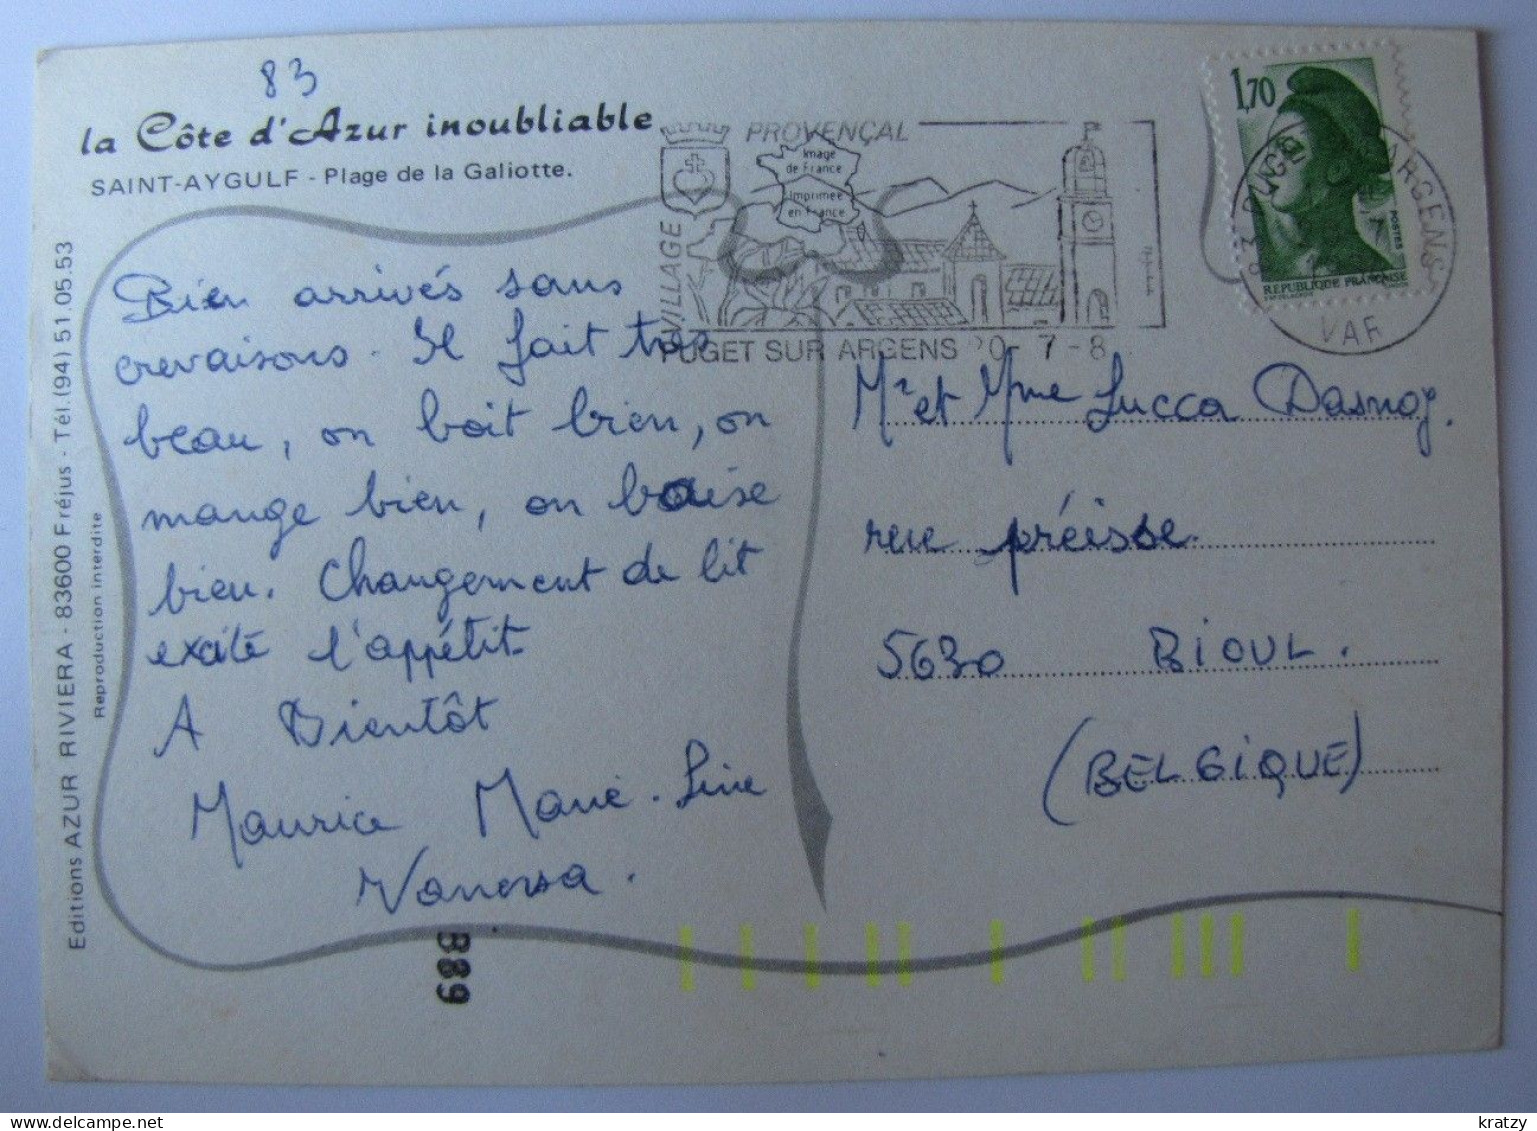 83
la Côte d'Azur inoubliable
SAINT-AYGULF - Plage de la Galiotte.
Bien arrivés sans
crevaisons. Il fait tres
beau, on boit bien, on
mange bien, on baise
bien. Changement de lit
excite l'appétit
A Bientôt
Maurice Marie-Line
Vanessa.
Editions AZUR RIVIERA - 83600 Fréjus - Tél. (94) 51.05.53
Reproduction interdite
VILLAGE
PROVENÇAL
Image
de France
Imprimée
en France
PUGET SUR ARGENS 20-7-8
1,70
POSTES
REPUBLIQUE FRANÇAISE
83 PUGET ARGENS
VAR
Mr et Mme Lucca Dasnoy.
rue précisse
5630 BIOUL.
(BELGIQUE)
B89
kratzy